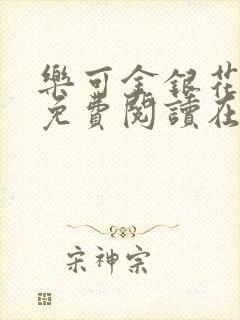 樂可金銀花
免費閱讀在
宋神宗